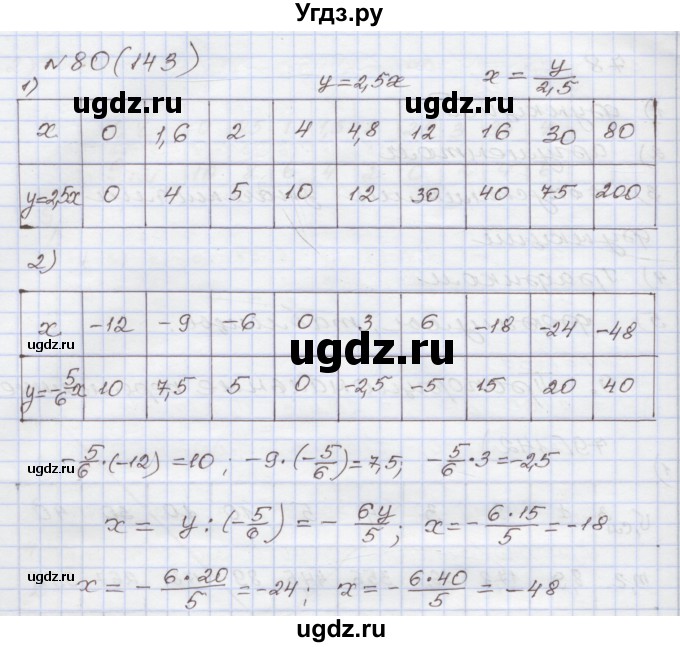 Угдз.ру
N80(143)
1) y=2,5x x = y/2,5
ugdz.ru ugdz.ru
x 0 1,6 2 4 4,8 12 16 30 80
y=2,5x 0 4 5 10 12 30 40 75 200
2)
x -12 -9 -6 0 3 6 -18 -24 -48
ugdz.ru ugdz.ru ugdz.ru
y=-5/6x 10 7,5 5 0 -2,5 -5 15 20 40
-5/6·(-12) = 10; -9·(-5/6) = 7,5; -5/6·3 = -2,5
ugdz.ru ugdz.ru
x = y : (-5/6) = - 6y/5; x = - 6·15/5 = -18
ugdz.ru
x = - 6·20/5 = -24; x = - 6·40/5 = -48
ugdz.ru
ugdz.ru